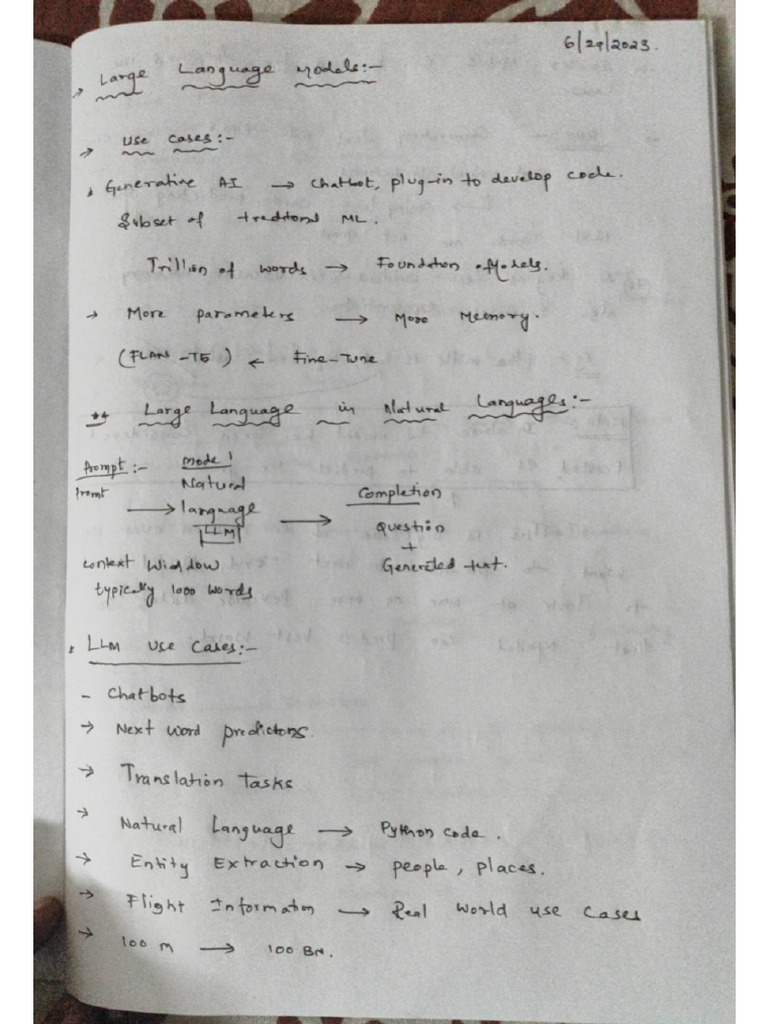 6/29/2023.
→ Large Language Models:-
→ Use Cases:-
Generative AI → Chatbot, plug-in to develop code.
Subset of traditonal ML.
Trillion of words → Foundaton of Models.
→ More parameters → More Memory.
(FLAN-T5) ← Fine-Tune
** Large Language in Natural Languages:-
Prompt:- Model
Promt → Natural language LLM → Completion
Question
+
Generated text.
Context Window
typically 1000 words
LLM Use Cases:-
- Chatbots
→ Next word predictons.
→ Translation Tasks
→ Natural Language → Python code.
→ Entity Extraction → people, places.
→ Flight Informaton → Real World use cases
→ 100 M → 100 BN.